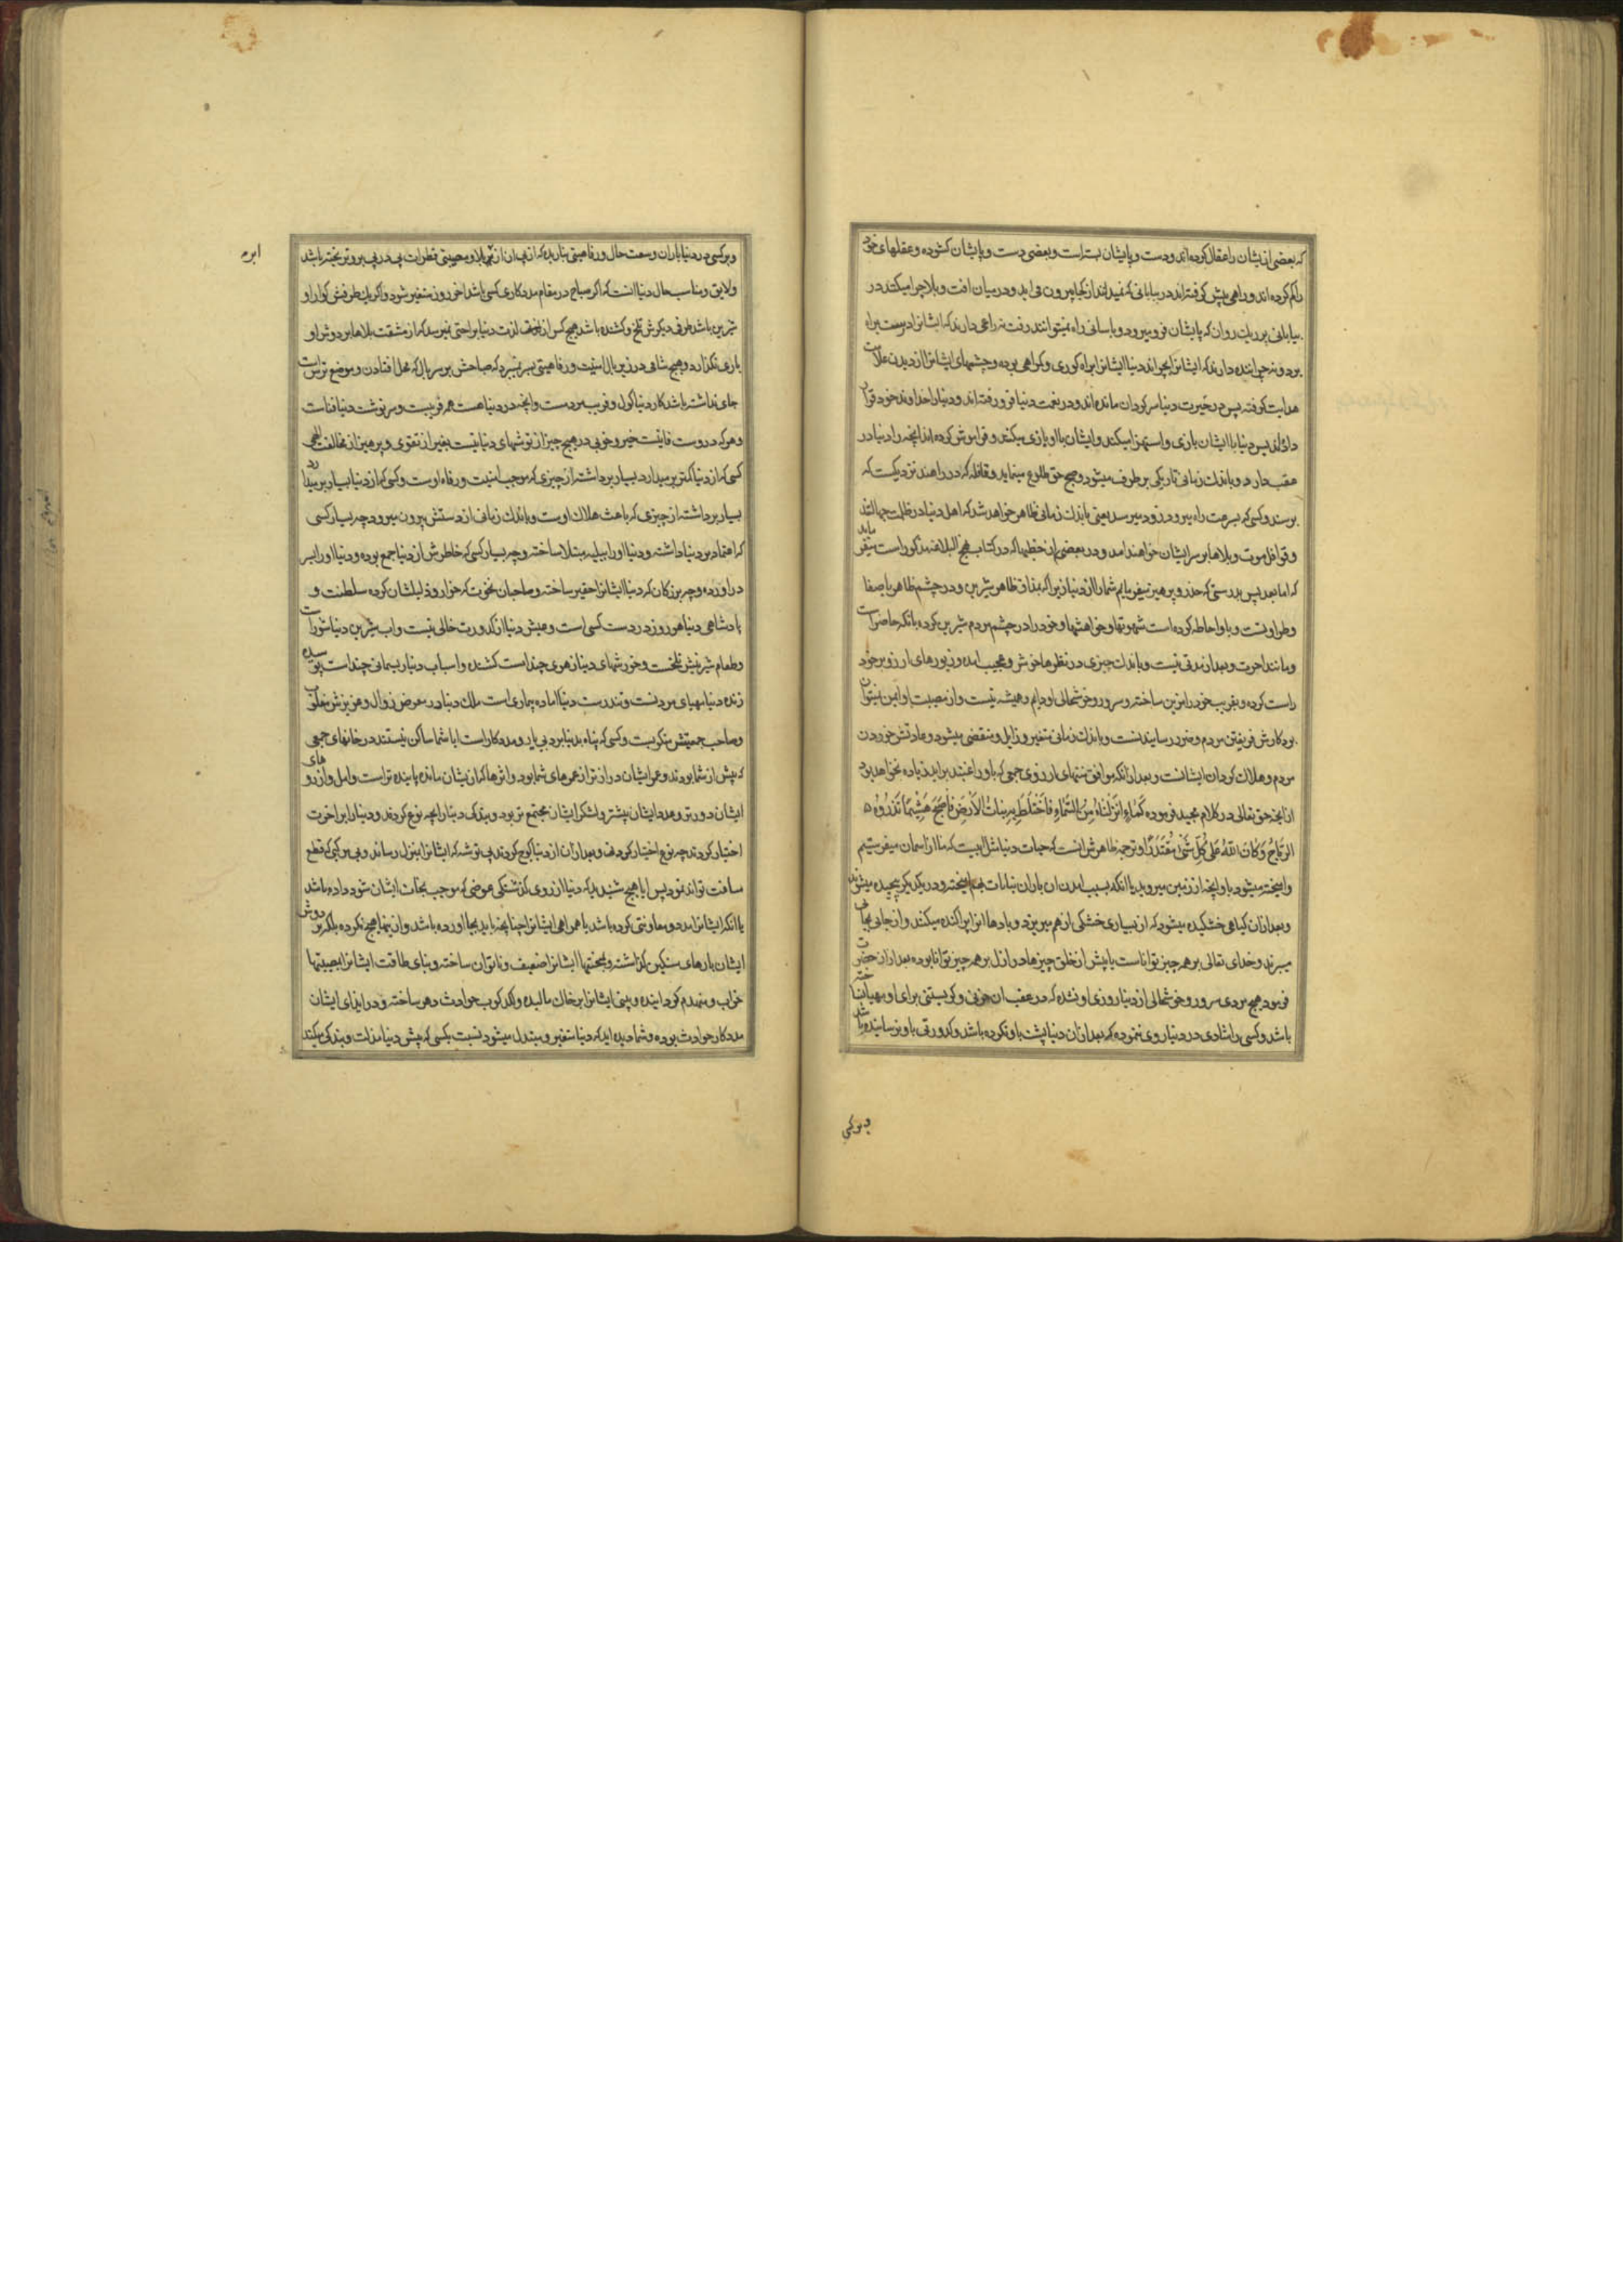 که بعضی از یشان را عقال کرده اند و دست و پایشان بسته است و بعضی دست و پایشان کشوده و عقلهای خود
را کم کرده اند و راهی پیش گرفته اند در بیابانی که نمیدانند از کجا بیرون می اید و در میان افت و بلا چرا میکند در
بیابانی پر ریک روان که پایشان فرو میرود و باسانی راه نمیتوانند رفت نه راعی دارند که ایشانرا درست براه
برد و نه چراننده دارند که ایشانرا بچراند دنیا ایشانرا براه کوری و کمراهی برده و چشمهای ایشانرا از دیدن علامت
هدایت گرفته پس در حیرت دنیا سرکردان مانده اند و در نعمت دنیا فرو رفته اند و دنیا را خداوند خود قرار
داده اند پس دنیا با ایشان بازی و استهزا میکند و ایشان با او بازی میکنند و فراموش کرده اند انچه را دنیا در
عقب دارد و باندک زمانی تاریکی برطرف میشود و صبح حق طلوع مینماید و قافله که در راهند نزدیکست که
برسند و کسی که بسرعت راه میرود زود میرسد یعنی باندک زمانی ظاهر خواهد شد که اهل دنیا در ظلمت جهالتند
و قوافل موت و بلاها بر سر ایشان خواهند امد و در بعضی از خطبها که در کتاب نهج البلاغه مذکور است میفرماید
که اما بعد پس بدرستی که حذر و پرهیز میفرمایم شما را از دنیا زیرا که بمذاق ظاهر شیرین و در چشم ظاهر با صفا
و طراوتست و باو احاطه کرده است شهوتها و خواهشها و خود را در چشم مردم شیرین کرده بانکه حاضر است
و مانند اخرت و بعد از مدتی نیست و باندک چیزی در نظرها خوش و عجیب امده و زیورهای ارزو بر خود
راست کرده و بفریب خود را مزین ساخته و سرور و خوشحالی او دایم و همیشه نیست و از مصیبت او ایمن نمیتوان
بود کارش فریفتن مردم و ضرر رسانیدنست و باندک زمانی متغیر و زایل و منقضی میشود و عادتش خوردن
مردم و هلاک کردن ایشانست و بعد از انکه موافق منتهای ارزوی جمعی که باو راغبند براید زیاده نخواهد بود
از انچه حق تعالی در کلام مجید فرموده كَمَاءٍ اَنْزَلْنَاهُ مِنَ السَّمَاءِ فَاخْتَلَطَ بِهِ نَبَاتُ الْاَرْضِ فَاَصْبَحَ هَشِيمًا تَذْرُوهُ
الرِّيَاحُ وَكَانَ اللّٰهُ عَلىٰ كُلِّ شَىْءٍ مُقْتَدِرًا و ترجمه ظاهرش انست که حیات دنیا مثل ابیست که ما از اسمان میفرستیم
و امیخته میشود باو انچه از زمین میروید یا انکه بسبب امدن ان باران نباتات بهم امیخته و در یکدیگر پیچیده میشوند
و بعد از ان گیاهی خشکیده میشود که از بسیاری خشکی از هم میریزد و بادها انرا پراکنده میکنند و از جائی بجائی
میبرند و خدای تعالی بر همه چیز تواناست یا پیش از خلق چیزها در ازل بر همه چیز توانا بوده بعد از ان حضرت
فرمود هیچ مردی سرور و خوشحالی از دنیا روزی او نشده که در عقب ان حزنی و گریستنی برای او مهیا نساخته
باشد و کسی را شادی در دنیا روی ننموده که بعد از ان دنیا پشت باو نکرده باشد و کدورتی باو نرسانیده باشد
و بر کسی
و بر کسی در دنیا باران وسعت حال و رفاهیتی نباریده که از پی ان از بلا و مصیبتی قطرات پی در پی برو نریخته باشد
و لایق و مناسب حال دنیا انست که اگر صباح در مقام مددکاری کسی باشد اخر روز متغیر شود و اگر یک طرفش گوارا و
شیرین باشد طرف دیگرش تلخ و کشنده باشد هیچ کس از لذت دنیا براحتی نمیرسد که از مشقت بلاها بر دوش او
باری نگذارد و هیچ شامی در زیر بال امنیت و رفاهیتی بسر نمیبرد که صباحش بر سر بال که محل افتادن و موضع ترس است
جای نداشته باشد کار دنیا گول و فریب مردمست و انچه در دنیا هست همه فریبست و سرنوشت دنیا فناست
و هر که در وست فانیست خیر و خوبی در هیچ چیز از توشهای دنیا نیست بغیر از تقوی و پرهیز از مخالفت الهی
کسی که از دنیا کمتر برمیدارد بسیار برداشته از چیزی که موجب امنیت و رفاه اوست و کسی که از دنیا بسیار برمیدارد
بسیار برداشته از چیزی که باعث هلاک اوست و باندک زمانی از دستش بیرون میرود چه بسیار کسی
که اعتماد بر دنیا داشته و دنیا او را ببلیه مبتلا ساخته و چه بسیار کسی که خاطرش از دنیا جمع بوده و دنیا او را بسر
دراورده و چه بزرگان که دنیا ایشانرا حقیر ساخته و صاحبان نخوت که خوار و ذلیلشان کرده سلطنت و
پادشاهی دنیا هر روز در دست کسی است و عیش دنیا از کدورت خالی نیست و اب شیرین دنیا شور است
و طعام شیرینش تلخست و خورشهای دنیا زهری چند است کشنده و اسباب دنیا ریسمانی چند است پوسیده
زنده دنیا مهیای مردنست و تندرست دنیا اماده بیماری است ملک دنیا در معرض زوال و عزیزش مغلوب
و صاحب جمعیتش منکوبست و کسی که پناه بدنیا برد بی یار و مددکار است ایا شما ساکن نیستند در خانهای جمعی
که پیش از شما بودند و عمر ایشان دراز تر از عمرهای شما بود و اثرها که از یشان مانده پاینده تر است و امل و ارزوهای
ایشان دورتر و عدد ایشان بیشتر و لشکر ایشان مجتمع تر بود و بندگی دنیا را بچه نوع کردند و دنیا را بر اخرت
اختیار کردند چه نوع اختیار کردنی و بعد از ان از دنیا کوچ کردند بی توشه که ایشانرا بمنزل رساند و بی مرکبی که قطع
مسافت تواند نمود پس ایا هیچ شنیدید که دنیا از روی گذشتگی عوضی که موجب نجات ایشان شود داده باشد
یا انکه ایشانرا مدد و معاونتی کرده باشد یا همراهی ایشانرا چنانچه باید بجا اورده باشد و از ینها هیچ نکرده بلکه بر دوش
ایشان بارهای سنگین گذاشته و بمحنتها ایشانرا ضعیف و ناتوان ساخته و بنای طاقت ایشانرا بمصیبتها
خراب و منهدم گردانیده و بینی ایشانرا بر خاک مالیده و لگدکوب حوادث دهر ساخته و در ایذای ایشان
مددکار حوادث بوده و شما دیده اید که دنیا متغیر و مبتدل میشود نسبت بکسی که پیش دنیا مذلت و بندگی میکند